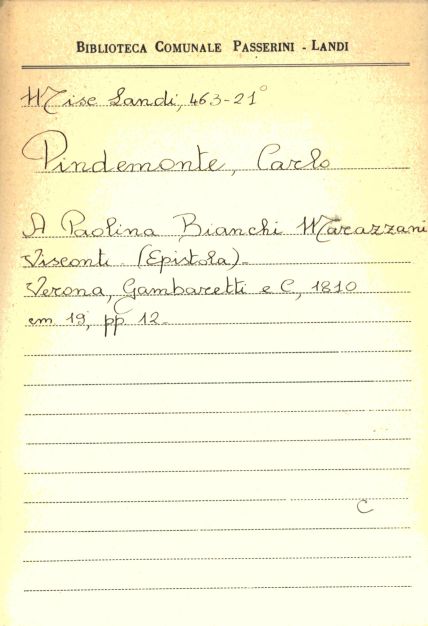 BIBLIOTECA COMUNALE PASSERINI - LANDI
Misc Landi, 463-21°
Pindemonte, Carlo
A Paolina Bianchi Marazzani
Visconti (Epistola)_
Verona, Gambaretti e C, 1810
cm 19, pp 12_
C